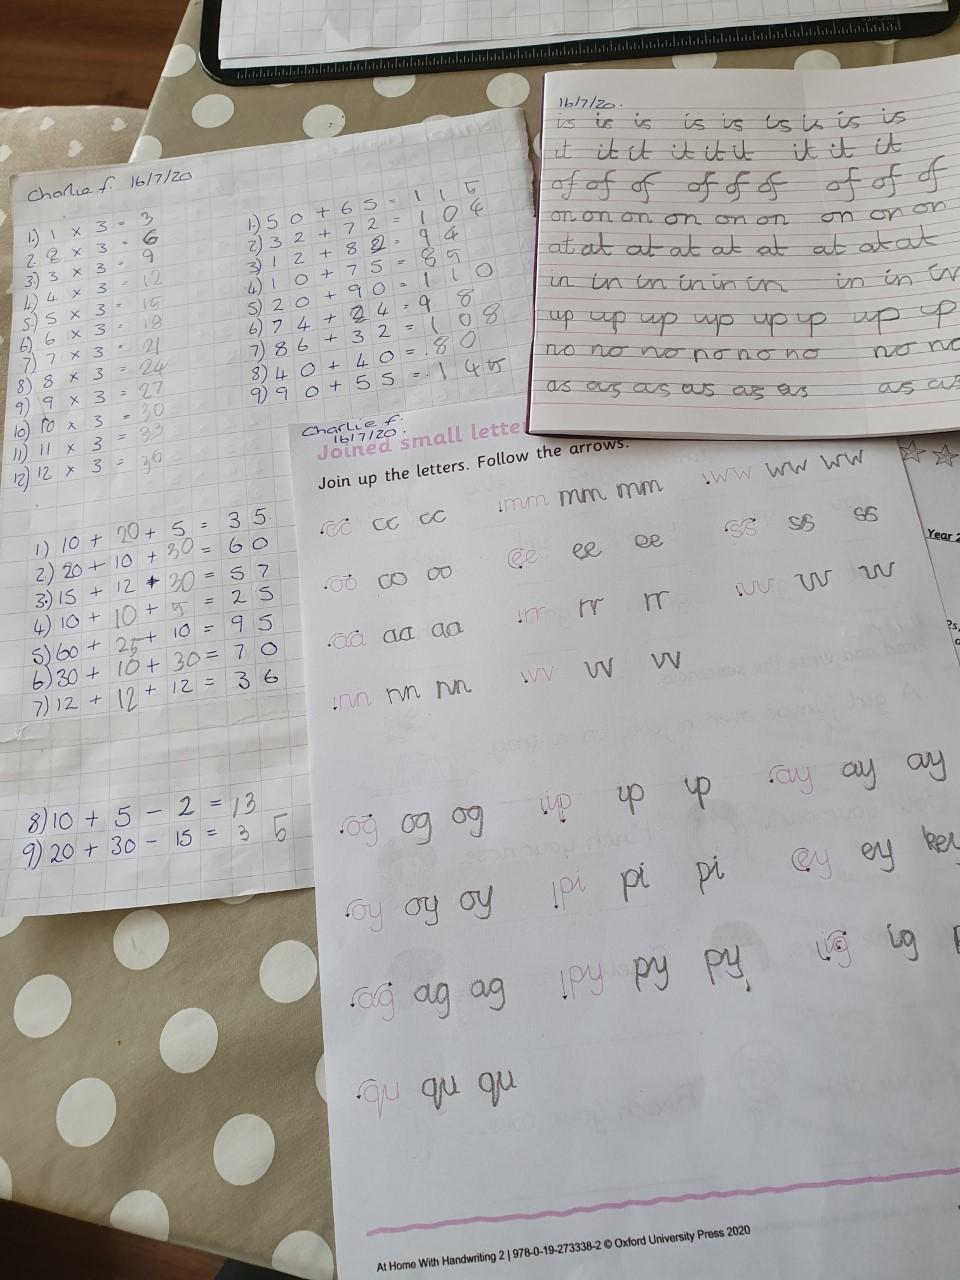 Charlie f. 16/7/20
1.) 1 x 3 = 3
2. 2 x 3 = 6
3.) 3 x 3 = 9
4.) 4 x 3 = 12
5.) 5 x 3 = 15
6) 6 x 3 = 18
7) 7 x 3 = 21
8) 8 x 3 = 24
9) 9 x 3 = 27
10) 10 x 3 = 30
11) 11 x 3 = 33
12) 12 x 3 = 36
1.) 50 + 65 = 115
2) 32 + 72 = 104
3) 12 + 82 = 94
4) 10 + 75 = 85
5) 20 + 90 = 110
6) 74 + 24 = 98
7) 86 + 32 = 108
8) 40 + 40 = 80
9) 90 + 55 = 145
1) 10 + 20 + 5 = 35
2) 20 + 10 + 30 = 60
3.) 15 + 12 + 30 = 57
4) 10 + 10 + 5 = 25
5) 60 + 25 + 10 = 95
6) 30 + 10 + 30 = 70
7) 12 + 12 + 12 = 36
8) 10 + 5 - 2 = 13
9) 20 + 30 - 15 = 35
16/7/20.
is is is is is is is is is
it it it it it it it it it
of of of of of of of of of
on on on on on on on on on
at at at at at at at at at
in in in in in in in in in
up up up up up up up up
no no no no no no no no
as as as as as as as as
Charlie f.
16/7/20.
Joined small lette
Join up the letters. Follow the arrows.
cc cc cc mm mm mm ww ww ww
oo oo oo ee ee ee ss ss ss
aa aa aa rr rr rr uu uu uu
nn nn nn vv vv vv
og og og up up up ay ay ay
oy oy oy pi pi pi ey ey key
ag ag ag py py py ig ig
qu qu qu
At Home With Handwriting 2 | 978-0-19-273338-2 © Oxford University Press 2020
Year 2